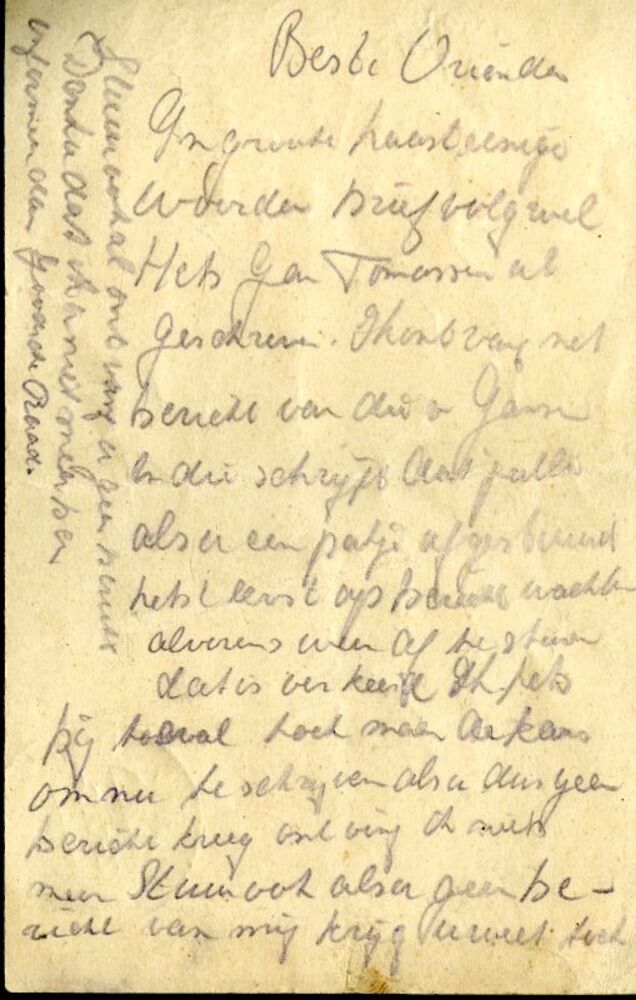 Beste Vrienden
In groote haast eenige
woorden brief volg wel
Heb Jan Tomassen al
geschreven. Ik ontvang net
bericht van die v Gansen
En die schrijft dat jullie
als er een pakje afgestuurd
hebt eerst op bericht wachten
alvorens weer af te sturen
dat is verkeerd Ik heb
bij toeval toch maar de kans
om nu te schrijven als u dus geen
bericht kreeg ontving ik niets
meer Stuur ook als er geen be-
richt van mij krijg u weet toch
Stuur ook al ontvang u geen bericht
Denk dat ik niet meer ben